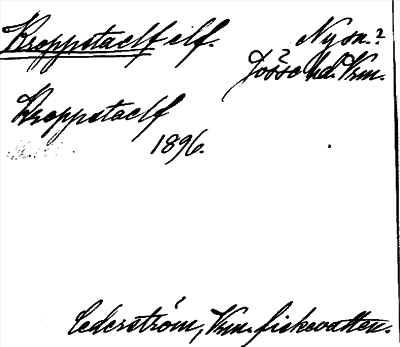 Kroppstaelf elf. Nysn.?
Jösse hd. Vrm.
Kroppstaelf
1896.
Cederström, Vrm. fiskevatten.